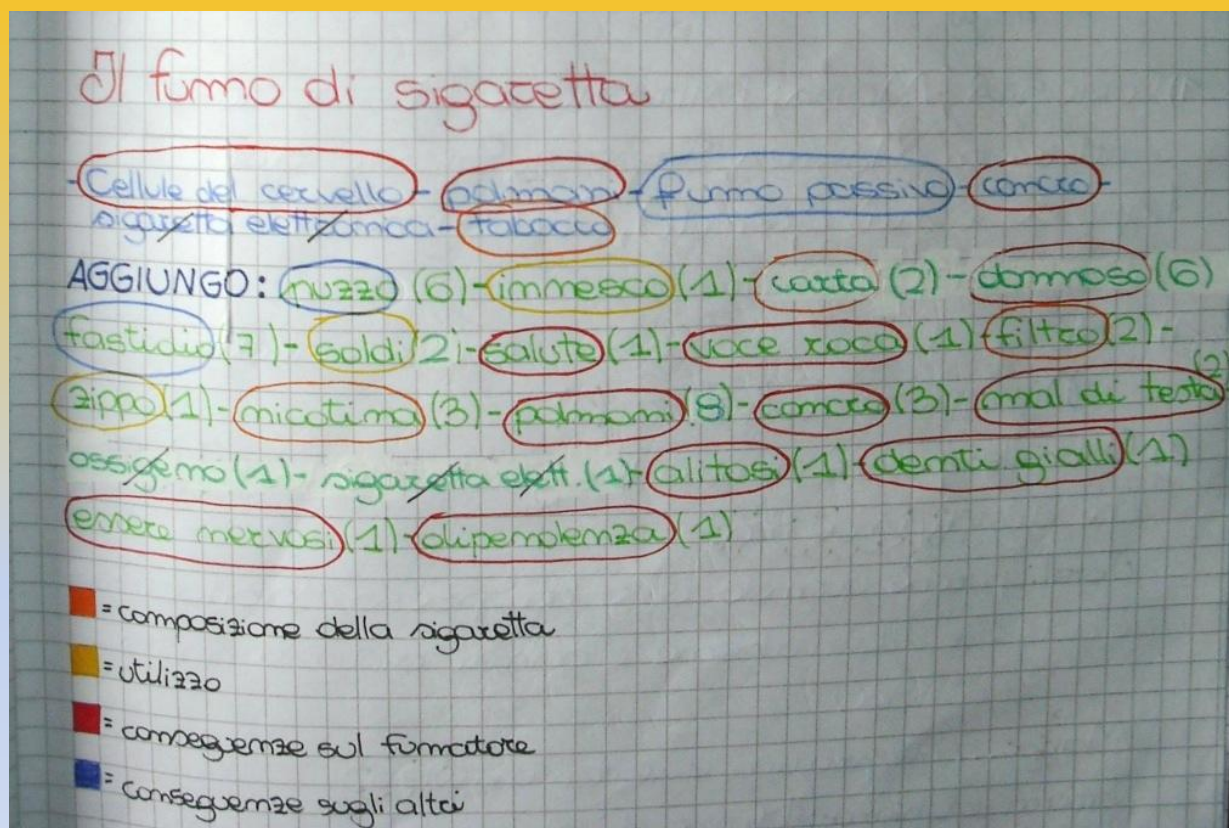 Il fumo di sigaretta
-Cellule del cervello-polmoni-fumo passivo-cancro-
sigaretta elettronica-tabacco
AGGIUNGO: puzzo (6)-innesco (1)-carta (2)-dannoso (6)
fastidio (7)-soldi (2)-salute (1)-voce roca (1)-filtro (2)-
zippo (1)-nicotina (3)-polmoni (8)-cancro (3)-mal di testa (2)
ossigeno (1)-sigaretta elett. (1)-alitosi (1)-denti gialli (1)
essere nervosi (1)-dipendenza (1)
= composizione della sigaretta
= utilizzo
= conseguenze sul fumatore
= conseguenze sugli altri